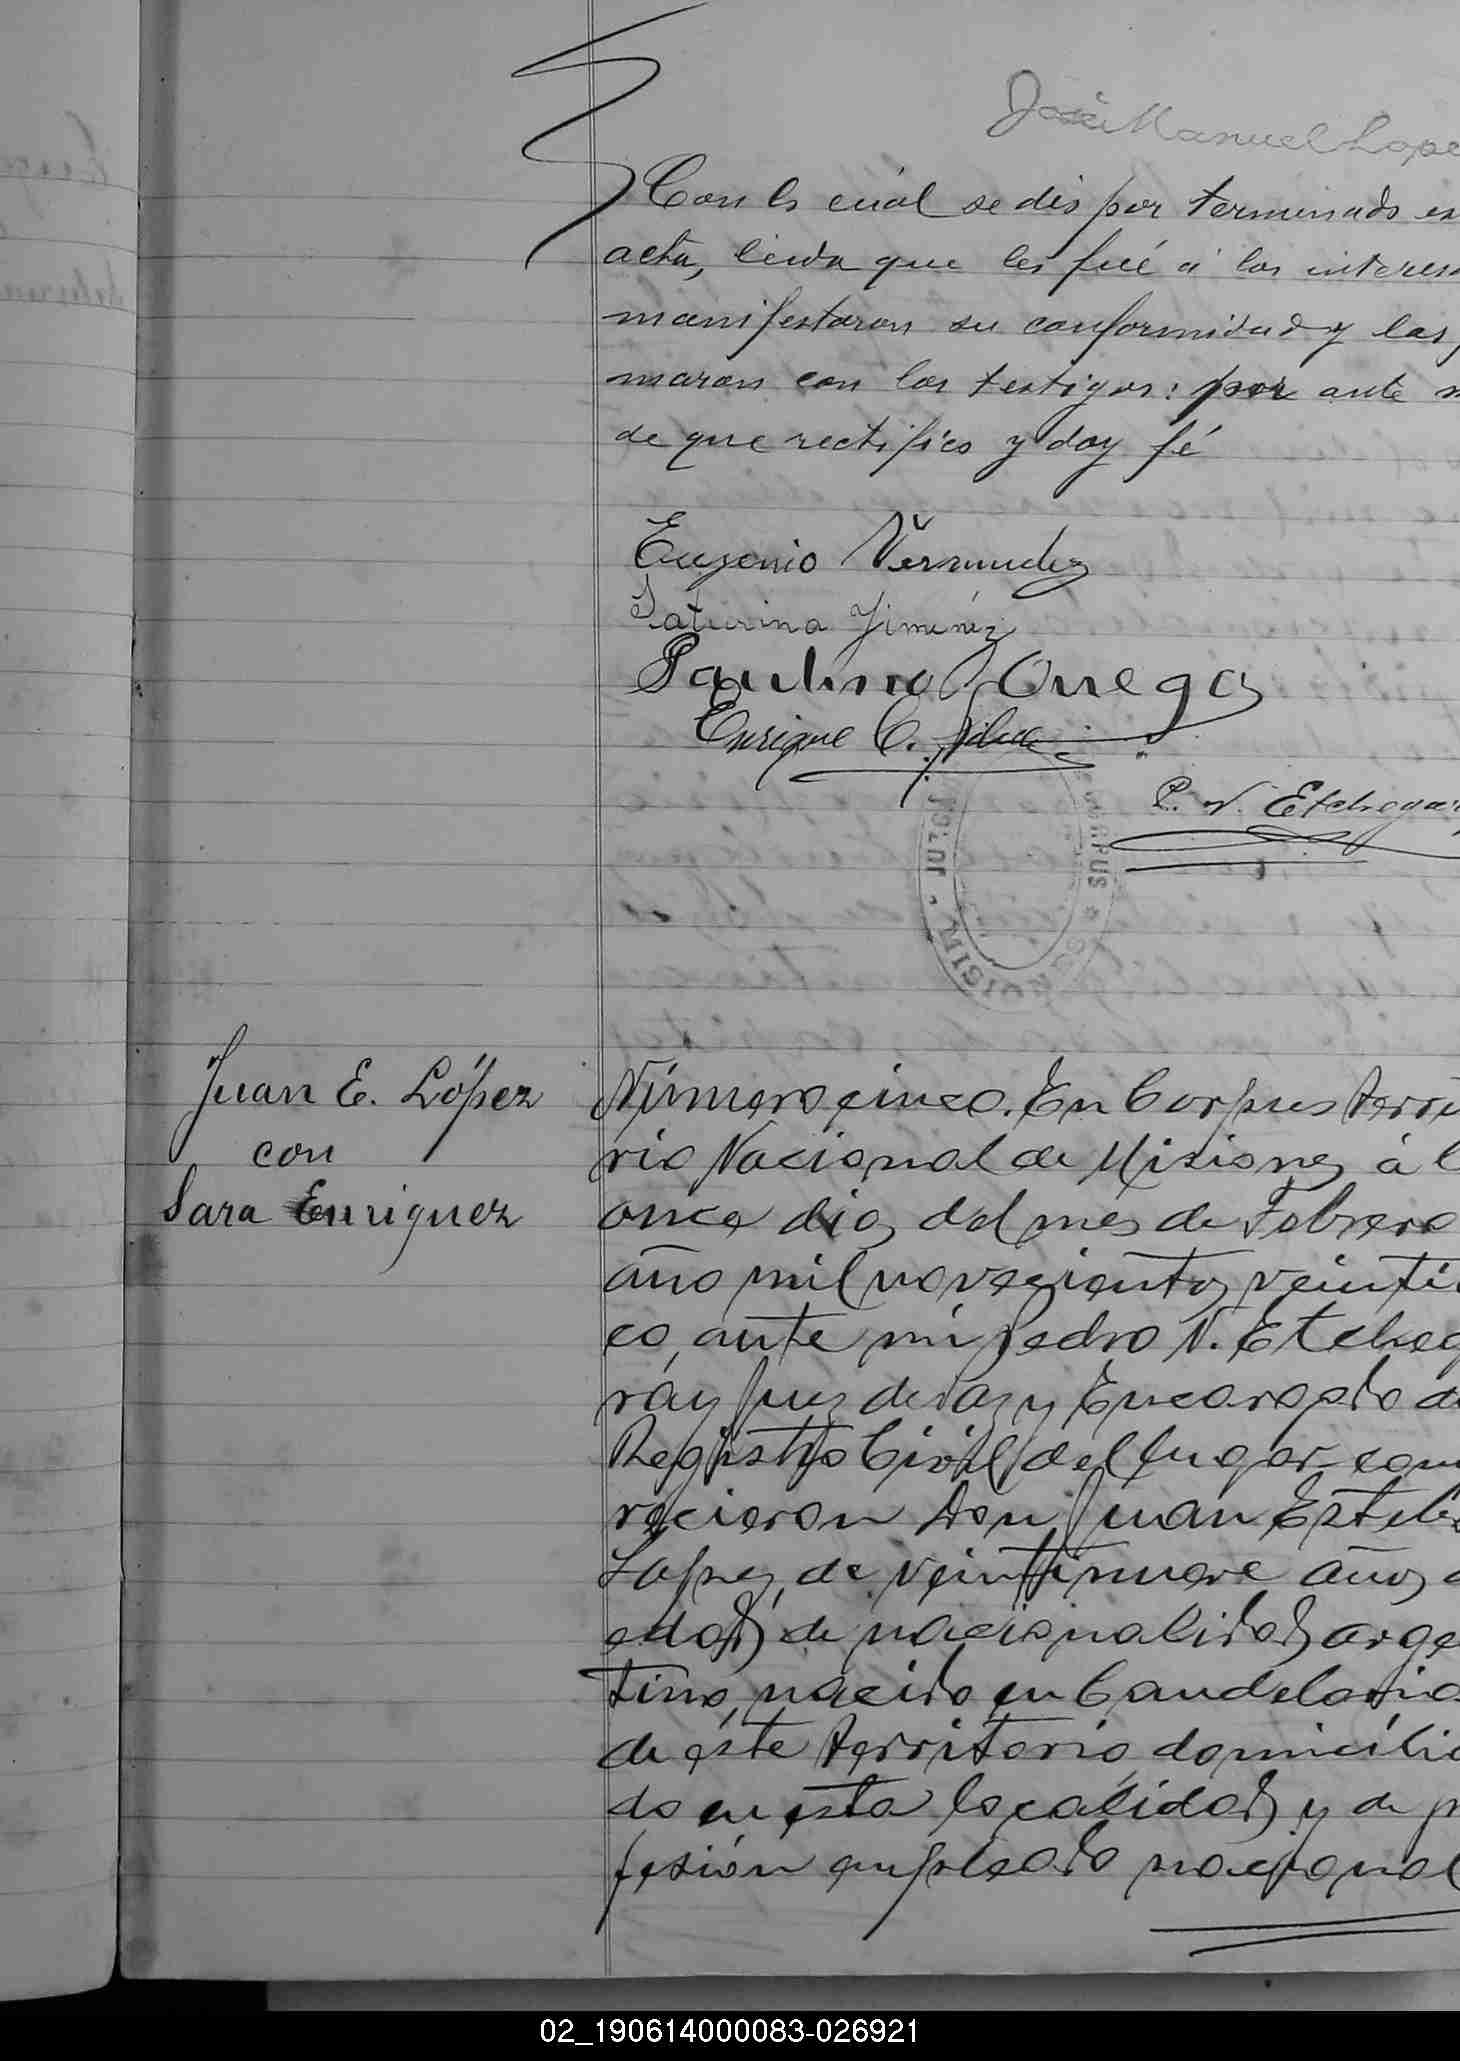 José Manuel Lope
Con lo cuál se dió por terminado es
acta, leida que les fué á los interes
manifestaron su conformidad y las f
maron con los testigos: por ante m
de que rectifico y doy fé
Eugenio Vermudez
Saturina Jimenez
Paulino Orrego
Enrique C. Silva
P. N. Etchegar
JUZG
CORPUS
MISIO
Juan E. López
con
Sara Enriquez
Número cinco. En Corpus Terri
rio Nacional de Misiones á l
once dias del mes de Febrero
año mil novecientos veinti
co, ante mí Pedro N. Etcheg
ray Juez de Paz y Encargado de
Registro Civil del lugar com
recieron Don Juan Esteb
Lopez, de veintinueve años d
edad, de nacionalidad arge
tino, nacido en Candelaria
de éste Territorio, domicilia
do en esta localidad y de p
fesión empleado nacional
02_190614000083-026921